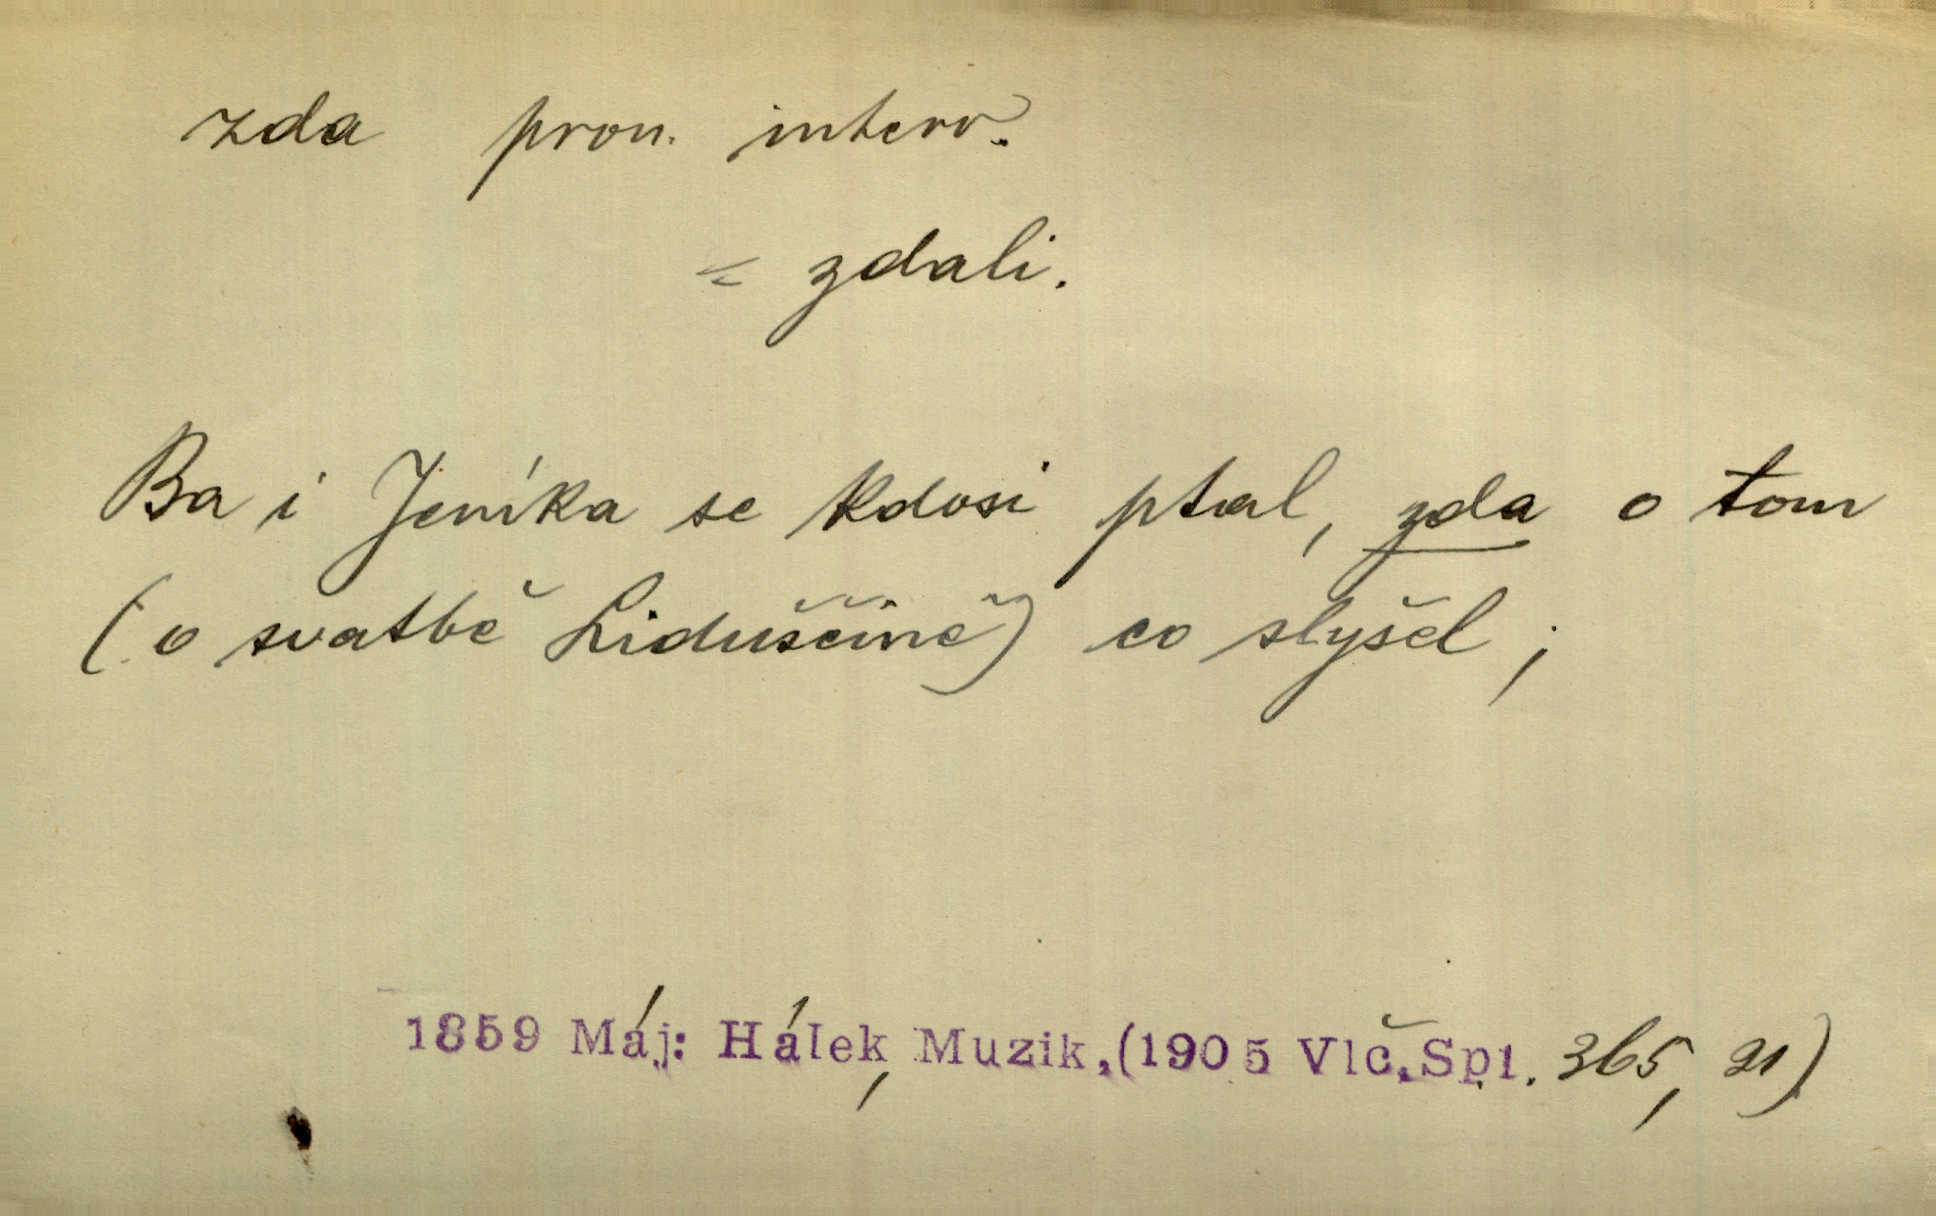 zda pron. interr.
= zdali.
Ba i Jeníka se kdosi ptal, zda o tom
(o svatbě Liduščině) co slyšel ;
1859 Máj: Hálek, Muzik,(1905 Vlč.Sp1. 365, 21)